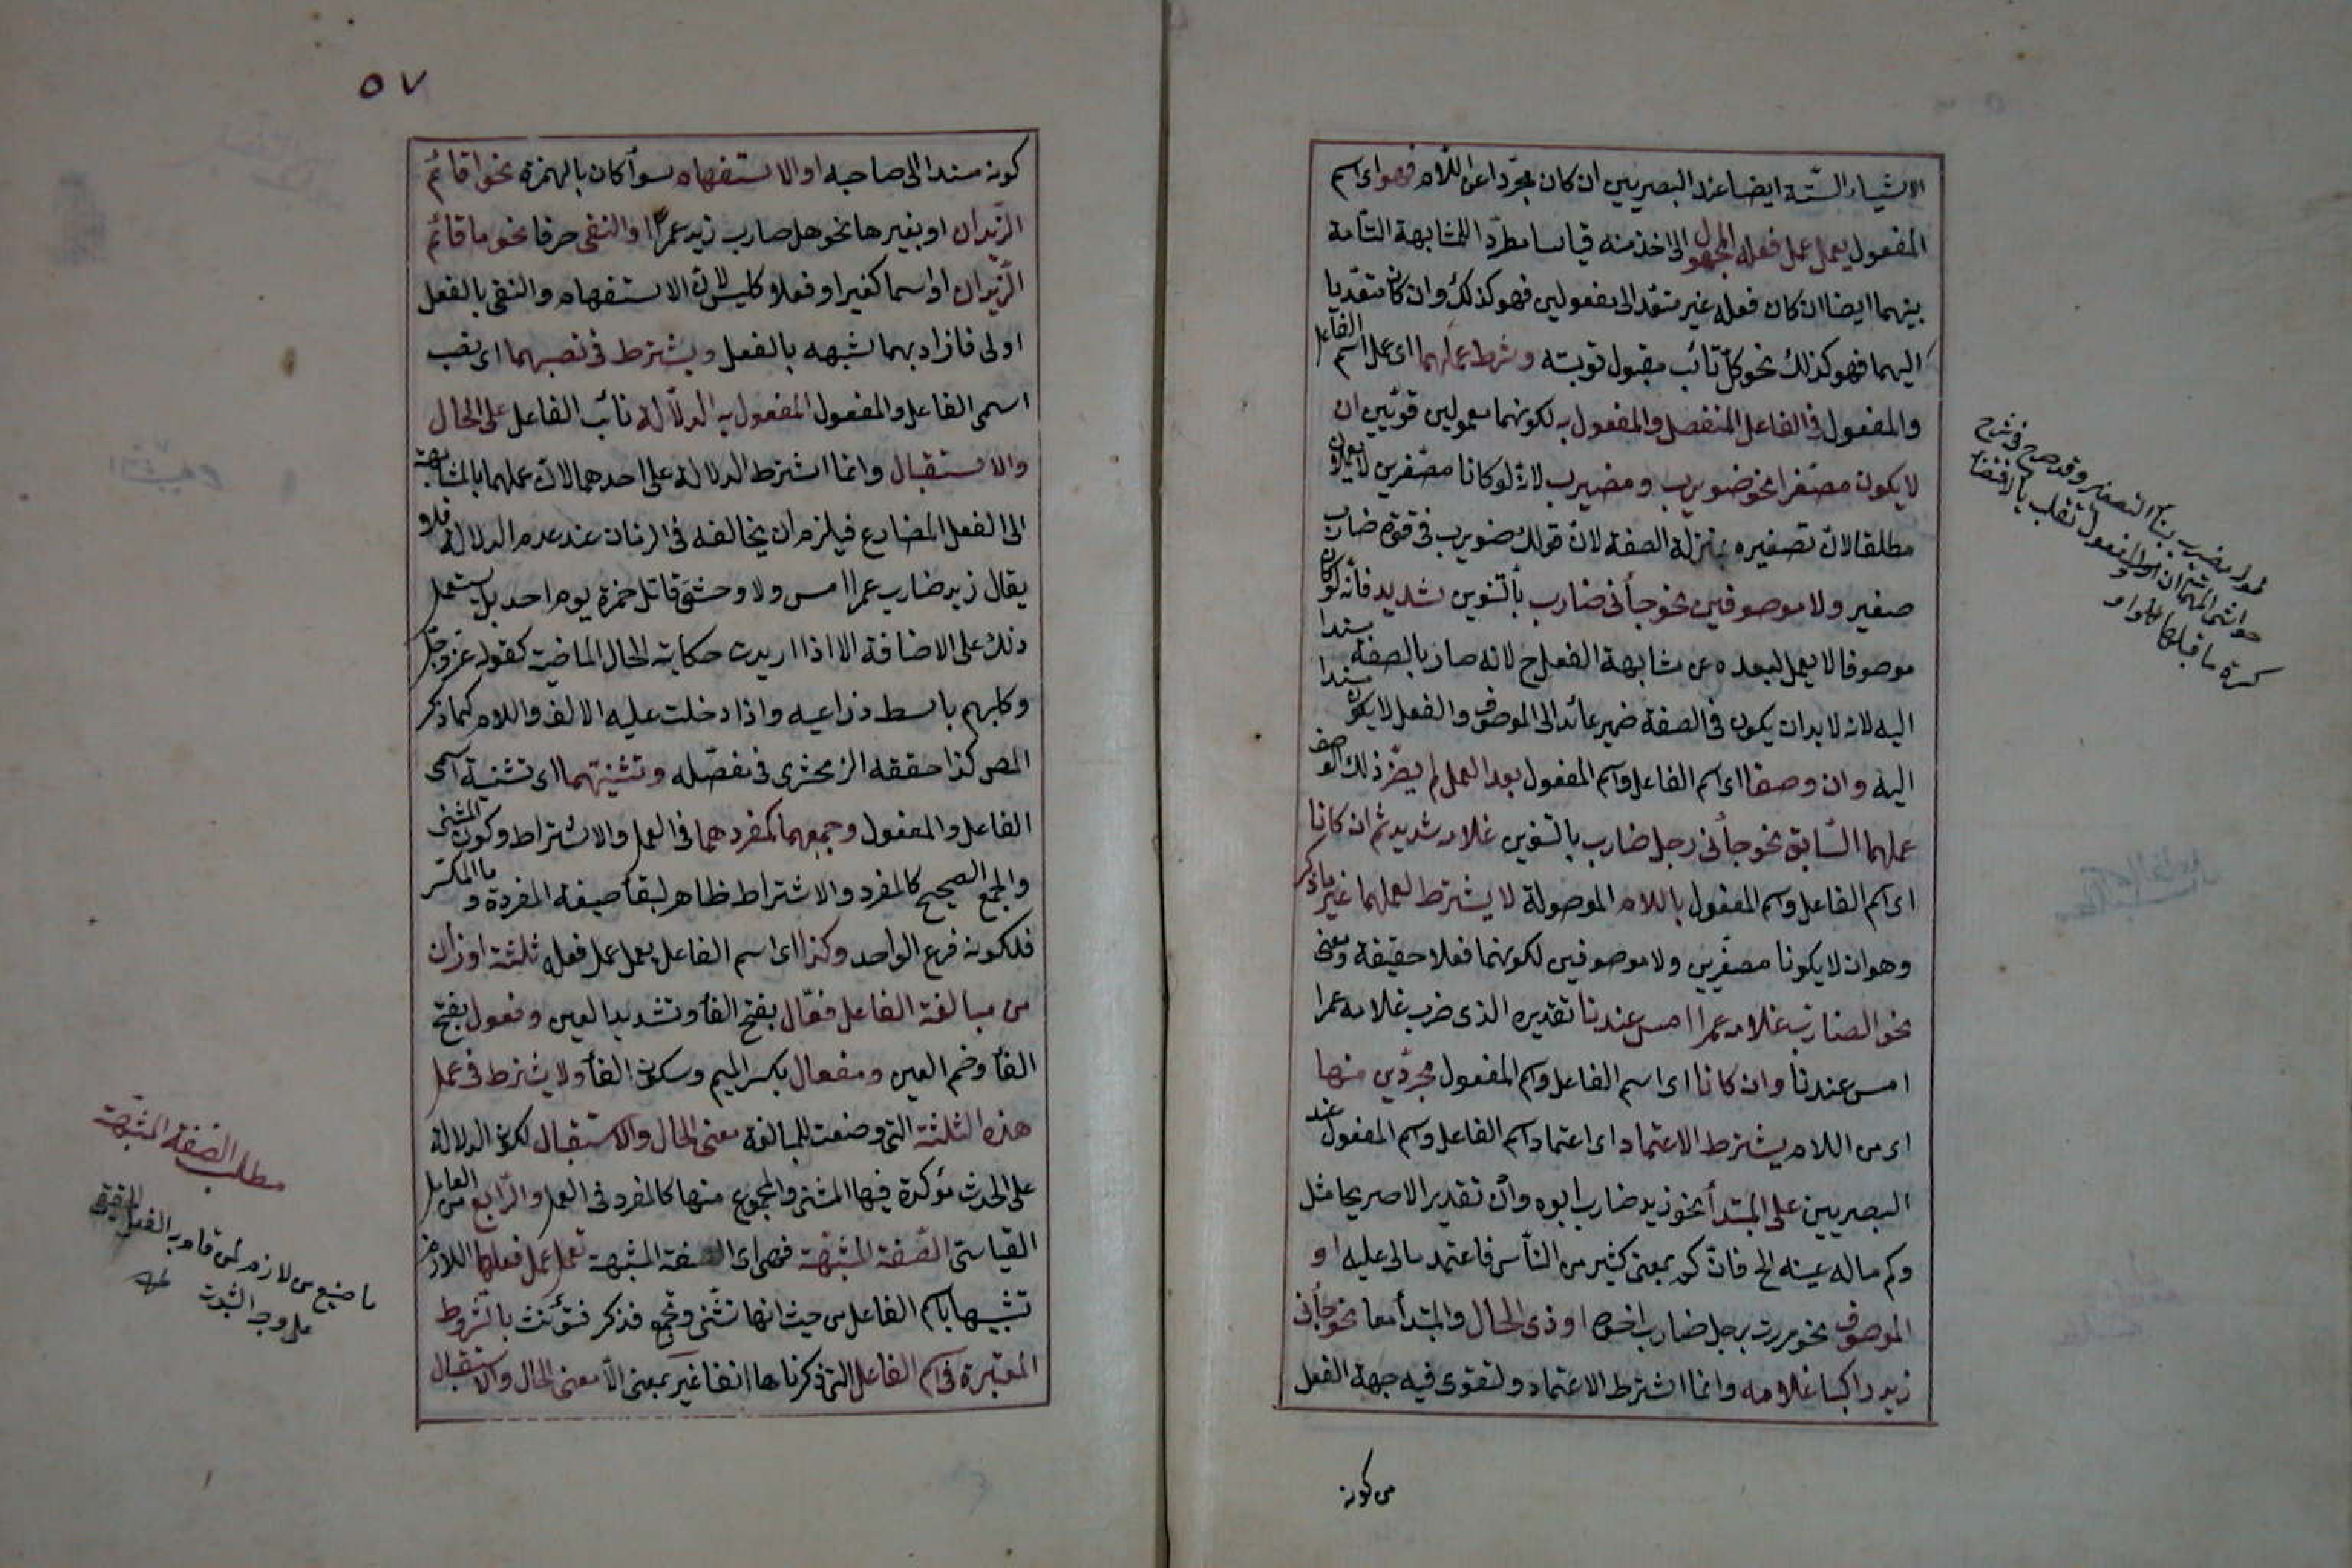 الاشياء الستة ايضا عند البصريين ان كان مجردا عن اللام فهو اى اسم
المفعول يعمل عمل فعله المجهول الى اخذ منه قياسا مطردا للمشابهة التامة
بينهما ايضا ان كان فعله غير متعد الى مفعولين فهو كذلك وان كان متعديا
اليهما فهو كذلك نحو كل تائب مقبول توبته وشرط عملهما اى عمل اسم الفاعل
والمفعول فى الفاعل المنفصل والمفعول به لكونهما معمولين قويين ان
لا يكون مصغرا نحو ضويرب ومضيرب لانه لو كانا مصغرين لا يعملان
مطلقا لان تصغيره بمنزلة الصفة لان قولك ضويرب فى قوة ضارب
صغير ولا موصوفين نحو جاءنى ضارب بالتنوين شديد فانه لو كان
موصوفا لا يعمل لبعده عن مشابهة الفعل ح لانه صار بالصفة مسندا
اليه لانه لا بد ان يكون فى الصفة ضمير عائد الى الموصوف والفعل لا يكون مسندا
اليه وان وصفا اى اسم الفاعل واسم المفعول بعد العمل لم يضر ذلك الوصف
عملهما السابق نحو جاءنى رجل ضارب بالتنوين غلامه شديد ثم ان كانا
اى اسم الفاعل واسم المفعول باللام الموصولة لا يشترط لعملهما غير ما ذكر
وهو ان لا يكونا مصغرين ولا موصوفين لكونهما فعلا حقيقة ومعنى
نحو الضارب غلامه عمرا امس عندنا تقديره الذى ضرب غلامه عمرا
امس عندنا وان كانا اى اسم الفاعل واسم المفعول مجردين منها
اى من اللام يشترط الاعتماد اى اعتماد اسم الفاعل واسم المفعول عند
البصريين على المبتدأ نحو زيد ضارب ابوه وان تقدير الاصريحا مثل
وكم ماله عينه الخ فان كم بمعنى كثير من الناس فاعتمد مالى عليه او
الموصوف نحو مررت برجل ضارب اخوه او ذى الحال والمبتدأ معا نحو جاءنى
زيد راكبا غلامه وانما اشترط الاعتماد ولتقوى فيه جهة الفعل
من كونه
٥٧
كونه مسندا الى صاحبه او الاستفهام سواء كان بالهمزة نحو اقائم
الزيدان او بغيرها نحو هل ضارب زيد عمرا او النفى حرفا نحو ما قائم
الزيدان او اسما كغير او فعلا كليس لان الاستفهام والنفى بالفعل
اولى فازاد بهما شبهه بالفعل ويشترط فى نصبهما اى نصب
اسمى الفاعل والمفعول المفعول به الدلالة نائب الفاعل على الحال
والاستقبال وانما اشترط الدلالة على احدهما لان عملهما بالمشابهة
الى الفعل المضارع فيلزم ان يخالفه فى الزمان عند عدم الدلالة فلا
يقال زيد ضارب عمرا امس ولا وحشى قاتل حمزة يوم احد بل يستعمل
ذلك على الاضافة الا اذا اريدت حكاية الحال الماضية كقوله عز وجل
وكلبهم باسط ذراعيه واذا دخلت عليه الالف واللام كما ذكر
المص كذا حققه الزمخشرى فى مفصله وتثنيتهما اى تثنية اسمى
الفاعل والمفعول وجمعهما كمفردهما فى العمل والاشتراط وكون المثنى
والجمع الصحيح كالمفرد والاشتراط ظاهر لبقاء صيغة المفردة واما المكسر
فلكونه فرع الواحد وكذا اى اسم الفاعل يعمل عمل فعله ثلثة اوزان
من مبالغة الفاعل فعال بفتح الفاء وتشديد العين وفعول بفتح
الفاء وضم العين ومفعال بكسر الميم وسكون الفاء ولا يشترط فى عمل
هذه الثلثة التى وضعت للمبالغة معنى الحال والاستقبال لكون الدلالة
على الحدث مؤكدة فيها المثنى والمجموع منها كالمفرد فى العمل والرابع من العامل
القياسى الصفة المشبهة فهى اى الصفة المشبهة تعمل عمل فعلها اللازم
تشبيها باسم الفاعل من حيث انها تثنى وتجمع فذكر فتؤنث بالشروط
المعتبرة فى اسم الفاعل التى ذكرناها انفا غير بمعنى الا معنى الحال والاستقبال
مطلب الصفة المشبهة
ما صيغ من لازم لمن قام به الفعل
على وجه الثبوت